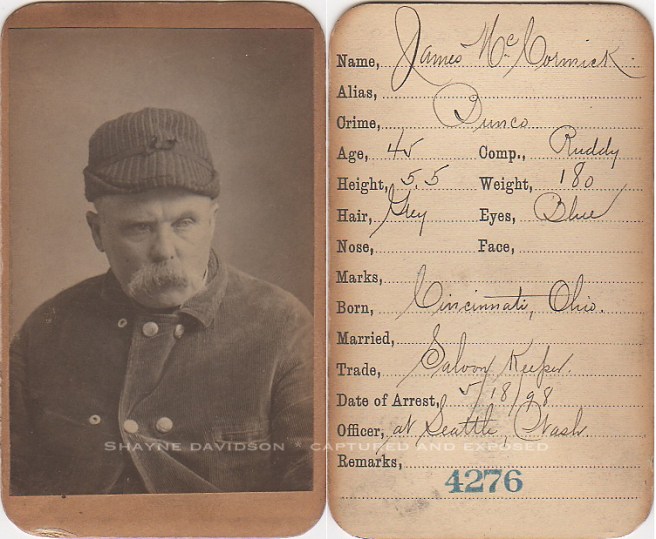 Name, James McCormick.
Alias,
Crime, Bunco
Age, 45 Comp., Ruddy
Height, 5.5 Weight, 180
Hair, Grey Eyes, Blue
Nose, Face,
Marks,
Born, Cincinnati, Ohio.
Married,
Trade, Saloon Keeper.
Date of Arrest, 5/18/98
Officer, at Seattle, Wash
Remarks,
4276
SHAYNE DAVIDSON * CAPTURED AND EXPOSED